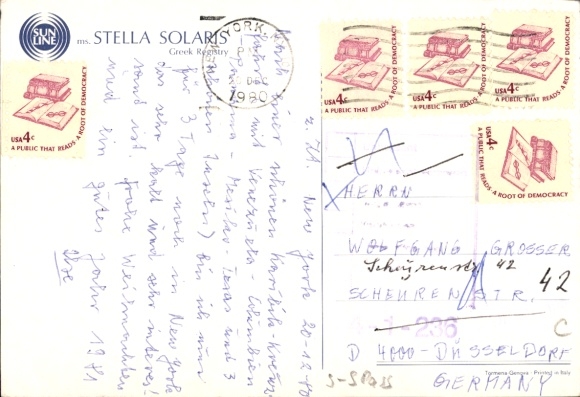 SUN
LINE
ms. STELLA SOLARIS
Greek Registry
YORK
1980
USA 4c
A PUBLIC THAT READS A ROOT OF DEMOCRACY
USA 4c
A PUBLIC THAT READS A ROOT OF DEMOCRACY
USA 4c
A PUBLIC THAT READS A ROOT OF DEMOCRACY
USA 4c
A PUBLIC THAT READS A ROOT OF DEMOCRACY
USA 4c
A PUBLIC THAT READS A ROOT OF DEMOCRACY
z. Zt. New York 20-12-80
Nach einer schönen Karibik-Kreuz
fahrt mit Venezuela-
Panama - Mexiko Texas und 3
Inseln) bin ich nur
für 3 Tage noch in New York
das sehr kalt und sehr interes!
und ist frohe Weihnachten
und ein gutes Jahr 1981
HERRN
WOLFGANG GROSSER
Scheurenstr. 42
SCHEURENSTR. 42
236
C
D 4000-DÜSSELDORF
GERMANY
Printed in Italy